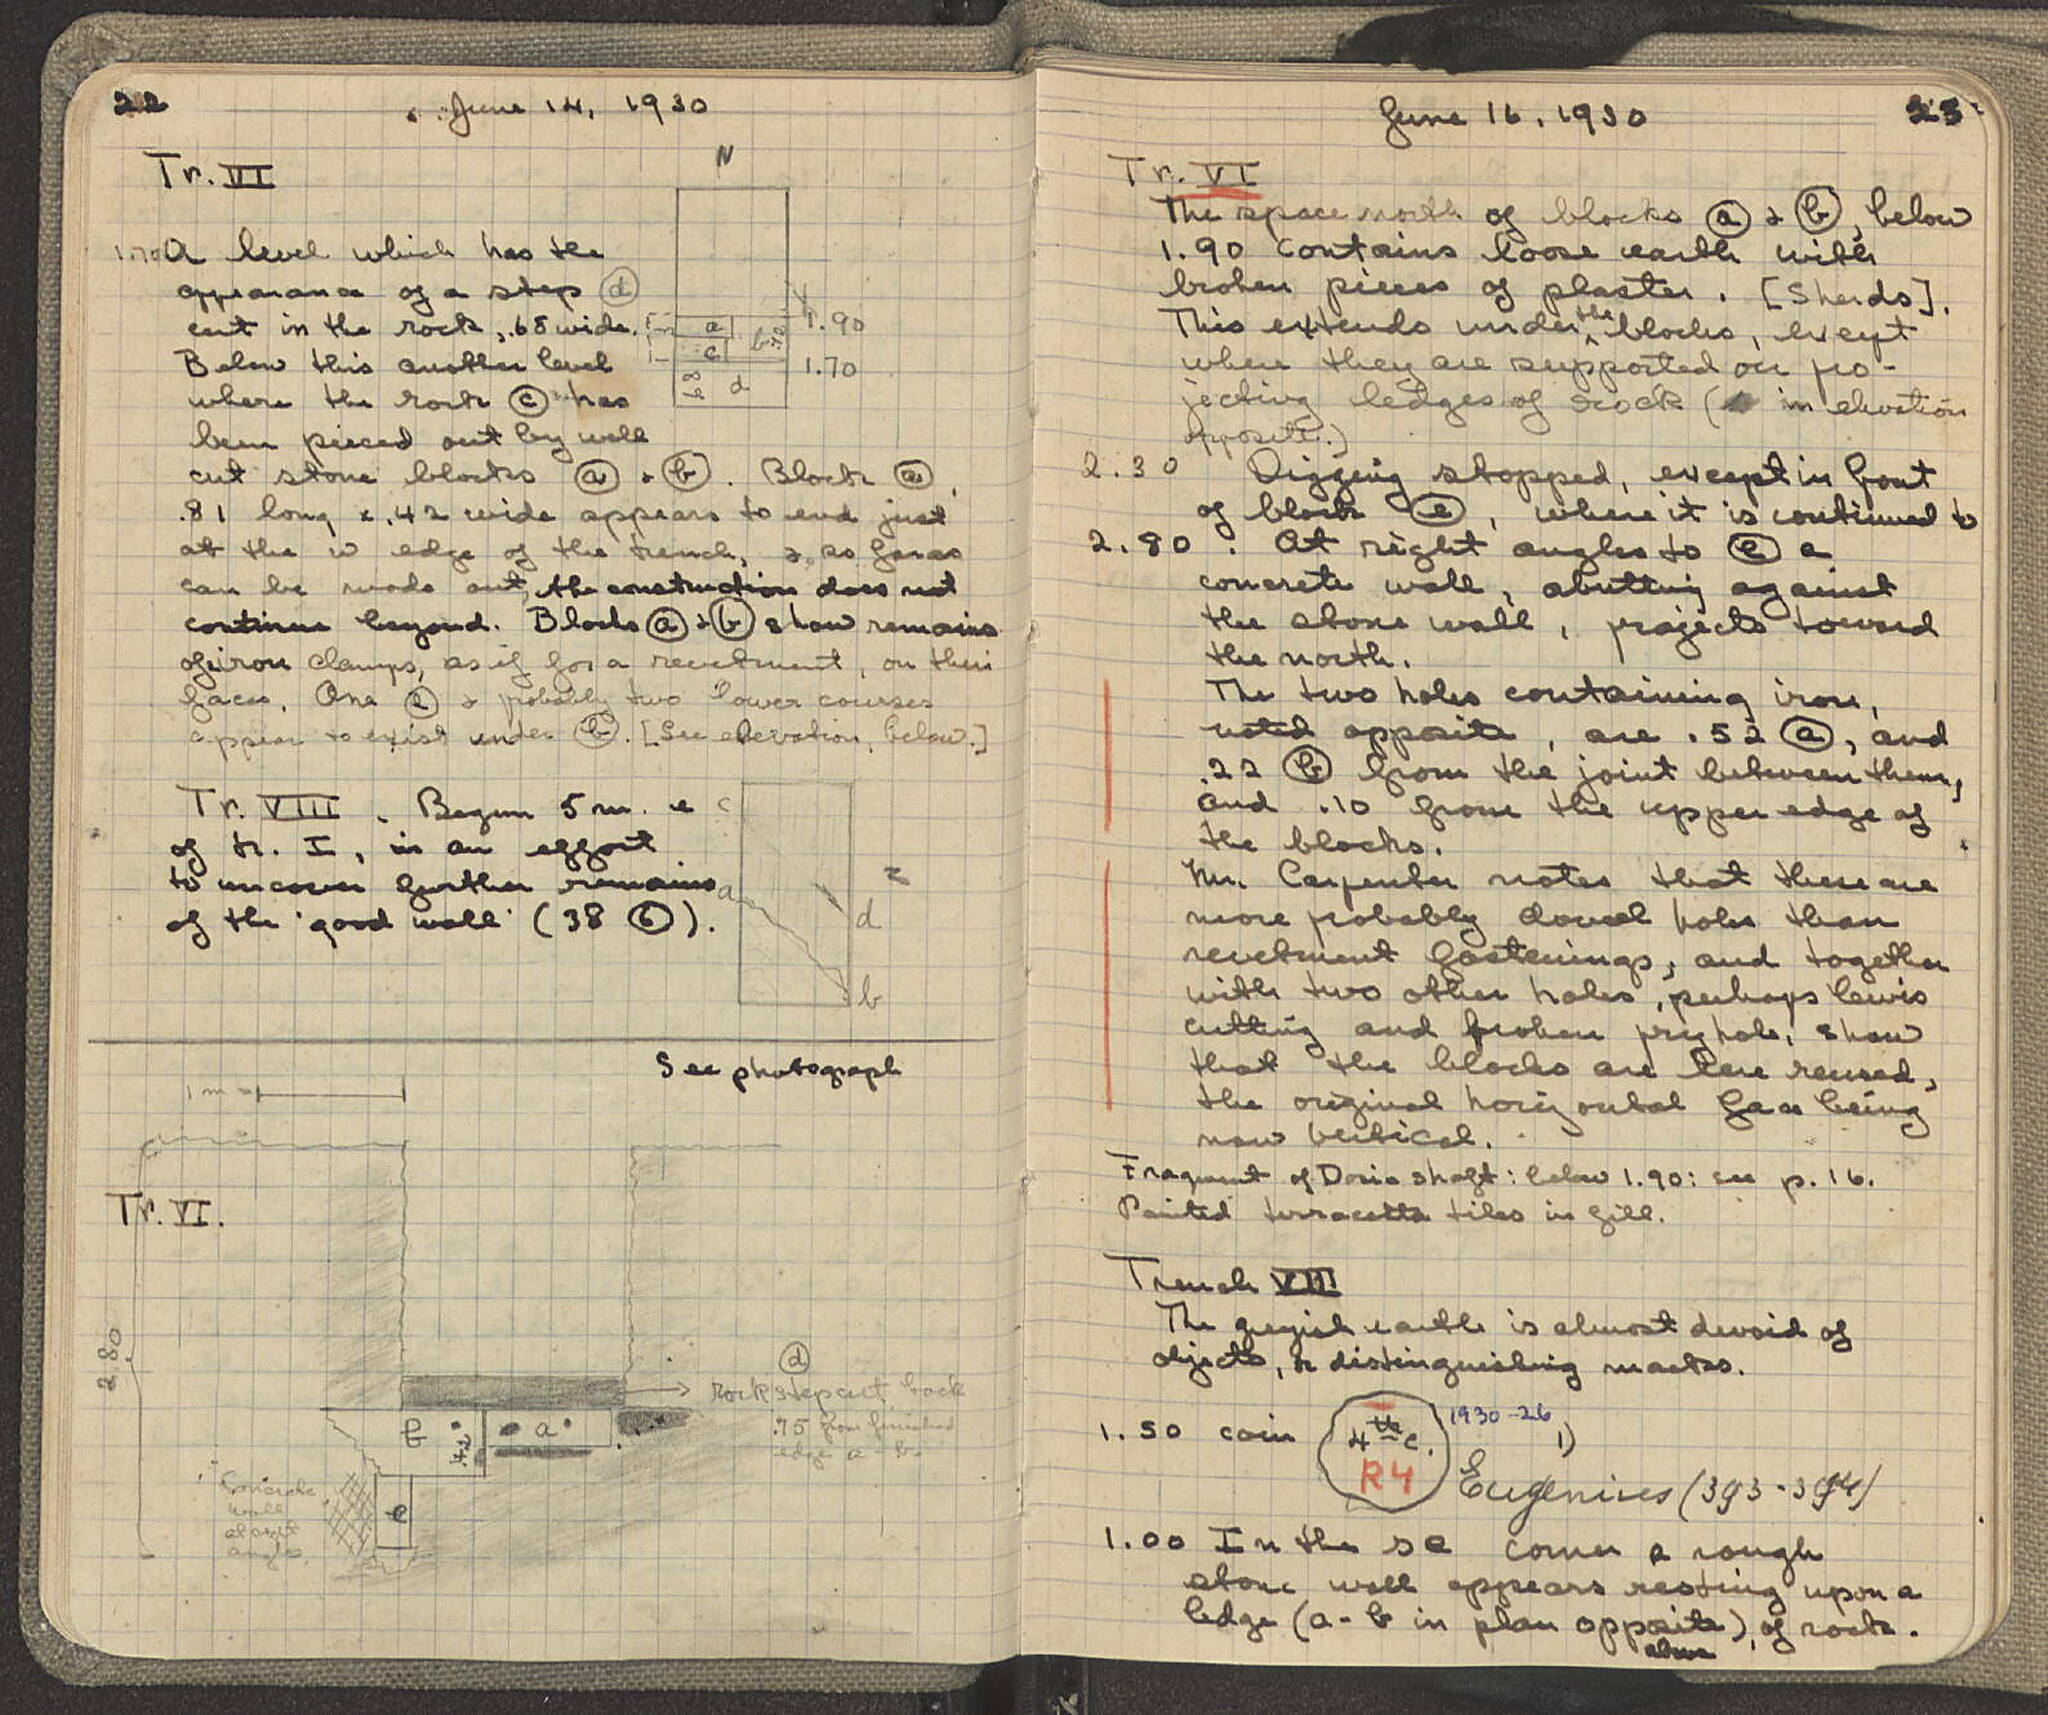 22
June 14, 1930
Tr. VI
N
1.70 A level which has the
appearance of a step (d)
cut in the rock, .68 wide.
Below this another level
where the rock (c) has
been pieced out by well
cut stone blocks (a) & (b). Block (a),
.81 long x .42 wide appears to end just
at the w edge of the trench, & so far as
can be made out, the construction does not
continue beyond. Blocks (a) & (b) show remains
of iron clamps, as if for a revetment, on their
faces. One (e) & probably two lower courses
appear to exist under (b). [See elevation, below.]
a
b
c
d
.68
1.90
1.70
Tr. VIII. Begun 5 m. e
of tr. I, in an effort
to uncover further remains
of the "good wall" (38 (6)).
c
a
d
b
z
See photograph
1 m =
Tr. VI.
2.80
(d)
rock step cut back
.75 from finished
edge a-b.
b
.42
a
e
Concrete
wall
at right
angles.
June 16, 1930
23
Tr. VI
The space north of blocks (a) & (b), below
1.90 contains loose earth with
broken pieces of plaster. [Sherds].
This extends under the blocks, except
where they are supported on pro-
jecting ledges of rock ( in elevation
opposite.)
2.30 Digging stopped, except in front
of block (e), where it is continued to
2.80. At right angles to (e) a
concrete wall, abutting against
the stone wall, projects toward
the north.
The two holes containing iron,
noted opposite, are .52 (a), and
.22 (b) from the joint between them,
and .10 from the upper edge of
the blocks.
Mr. Carpenter notes that these are
more probably dowel holes than
revetment fastenings, and together
with two other holes, perhaps lewis
cutting and broken pryhole, show
that the blocks are here reused,
the original horizontal face being
now vertical.
Fragment of Doric shaft: below 1.90: see p. 16.
Painted terracotta tiles in fill.
Trench VIII
The greyish earth is almost devoid of
objects, or distinguishing marks.
1.50 coin 4th c. R4 1930-26 1)
Eugenius (393-394)
1.00 In the se corner a rough
stone wall appears resting upon a
ledge (a-b in plan opposite), of rock.
above